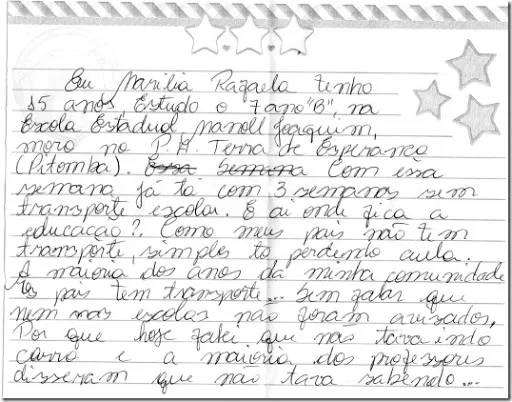 Eu Marilia Rafaela tenho
15 anos Estudo o 7 ano "B", na
Escola Estadual Manoel Joaquim,
moro no P.A. Terra de Esperança
(Pitomba). Essa Semana Com essa
semana já tá com 3 semanas sem
transporte escolar. E ai onde fica a
educação?. Como meus pais não tem
transporte, simples to perdendo aula.
A maioria dos anos da minha comunidade
os pais tem transporte... Sem falar que
nem nas escolas não foram avisados,
Por que hoje falei que não tava indo
carro e a maioria dos professores
disseram que não tava sabendo...